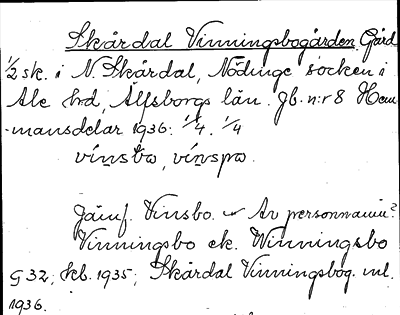 Skårdal Vinningsbogården. Gård
1/2 sk. i N. Skårdal, Nödinge socken i
Ale hd, Älfsborgs län. Jb. n:r 8 Hem-
mansdelar 1936: 1/4. 1/4
vínsbo, vínspo.
Jämf. Vinsbo. Av personnamn?
Vinningsbo ek. Winningsbo
G 32; kb. 1935; Skårdal Vinningsbog. ml.
1936.